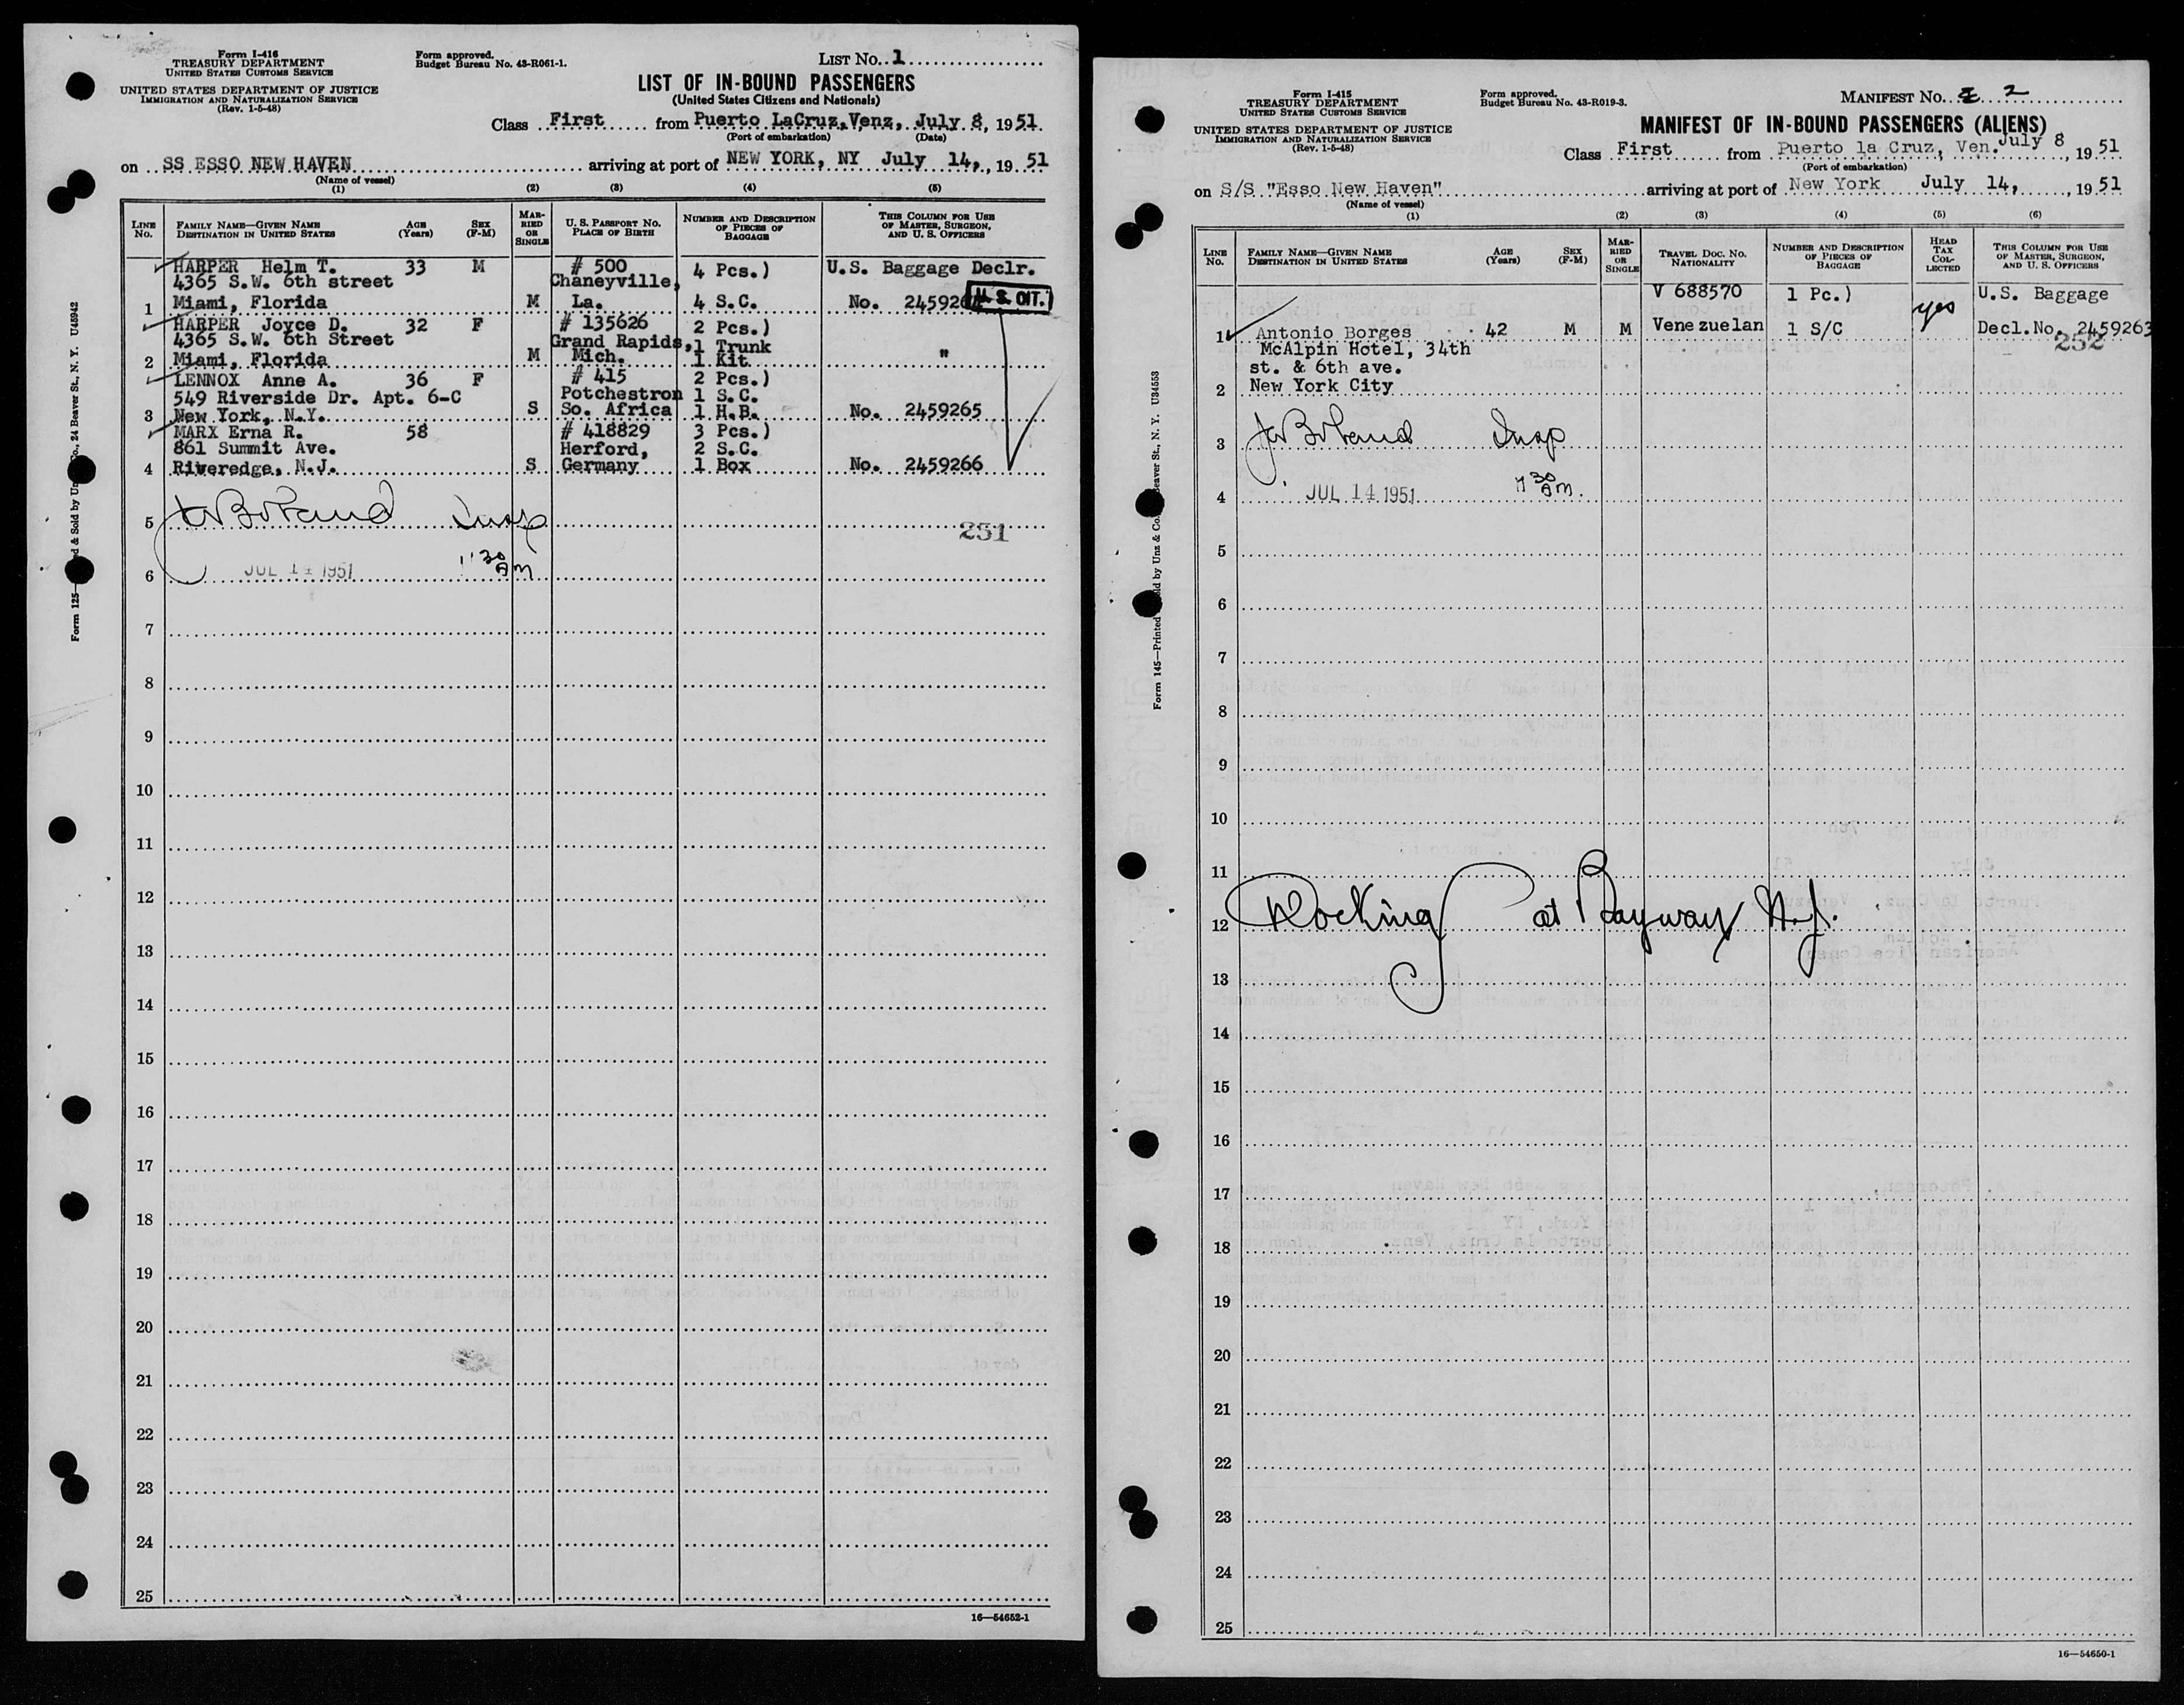 Form I-416
TREASURY DEPARTMENT
UNITED STATES CUSTOMS SERVICE
UNITED STATES DEPARTMENT OF JUSTICE
IMMIGRATION AND NATURALIZATION SERVICE
(Rev. 1-5-48)
Form approved.
Budget Bureau No. 43-R061-1.
LIST No. 1
LIST OF IN-BOUND PASSENGERS
(United States Citizens and Nationals)
Class First from Puerto LaCruz, Venz, July 8, 1951
(Port of embarkation) (Date)
on SS ESSO NEW HAVEN arriving at port of NEW YORK, NY July 14, 1951
(Name of vessel)
(1) (2) (3) (4) (5)
LINE No. FAMILY NAME—GIVEN NAME DESTINATION IN UNITED STATES AGE (Years) SEX (F-M) MARRIED OR SINGLE U. S. PASSPORT NO. PLACE OF BIRTH NUMBER AND DESCRIPTION OF PIECES OF BAGGAGE THIS COLUMN FOR USE OF MASTER, SURGEON, AND U. S. OFFICERS
HARPER Helm T. 33 M # 500 4 Pcs.) U.S. Baggage Declr.
4365 S.W. 6th street Chaneyville,
1 Miami, Florida M La. 4 S.C. No. 2459264 U.S. CIT.
HARPER Joyce D. 32 F # 135626 2 Pcs.)
4365 S.W. 6th Street Grand Rapids, 1 Trunk
2 Miami, Florida M Mich. 1 Kit "
LENNOX Anne A. 36 F # 415 2 Pcs.)
549 Riverside Dr. Apt. 6-C Potchestron 1 S.C.
3 New York, N.Y. S So. Africa 1 H.B. No. 2459265
MARX Erna R. 58 # 418829 3 Pcs.)
861 Summit Ave. Herford, 2 S.C.
4 Riveredge, N.J. S Germany 1 Box No. 2459266
5 Insp
251
6 JUL 14 1951 30 AM
7
8
9
10
11
12
13
14
15
16
17
18
19
20
21
22
23
24
25
16—54652-1
Form I-415
TREASURY DEPARTMENT
UNITED STATES CUSTOMS SERVICE
UNITED STATES DEPARTMENT OF JUSTICE
IMMIGRATION AND NATURALIZATION SERVICE
(Rev. 1-5-48)
Form approved.
Budget Bureau No. 43-R019-3.
MANIFEST No. 2
MANIFEST OF IN-BOUND PASSENGERS (ALIENS)
Class First from Puerto la Cruz, Ven. July 8, 1951
(Port of embarkation)
on S/S "Esso New Haven" arriving at port of New York July 14, 1951
(Name of vessel)
(1) (2) (3) (4) (5) (6)
LINE No. FAMILY NAME—GIVEN NAME DESTINATION IN UNITED STATES AGE (Years) SEX (F-M) MARRIED OR SINGLE TRAVEL DOC. NO. NATIONALITY NUMBER AND DESCRIPTION OF PIECES OF BAGGAGE HEAD TAX COLLECTED THIS COLUMN FOR USE OF MASTER, SURGEON, AND U. S. OFFICERS
V 688570 1 Pc.) yes U.S. Baggage
1 Antonio Borges 42 M M Venezuelan 1 S/C Decl.No. 2459263
252
McAlpin Hotel, 34th
st. & 6th ave.
2 New York City
3 Insp
4 JUL 14 1951 7 30 AM.
5
6
7
8
9
10
11
12 Docking at Bayway N.J.
13
14
15
16
17
18
19
20
21
22
23
24
25
16—54650-1